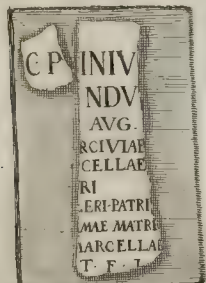 C P INIV
NDV
AVG.
RCIVIAE
CELLAE
RI
.ERI-PATRI
MAE MATRI
IARCELLAE
T. F. I